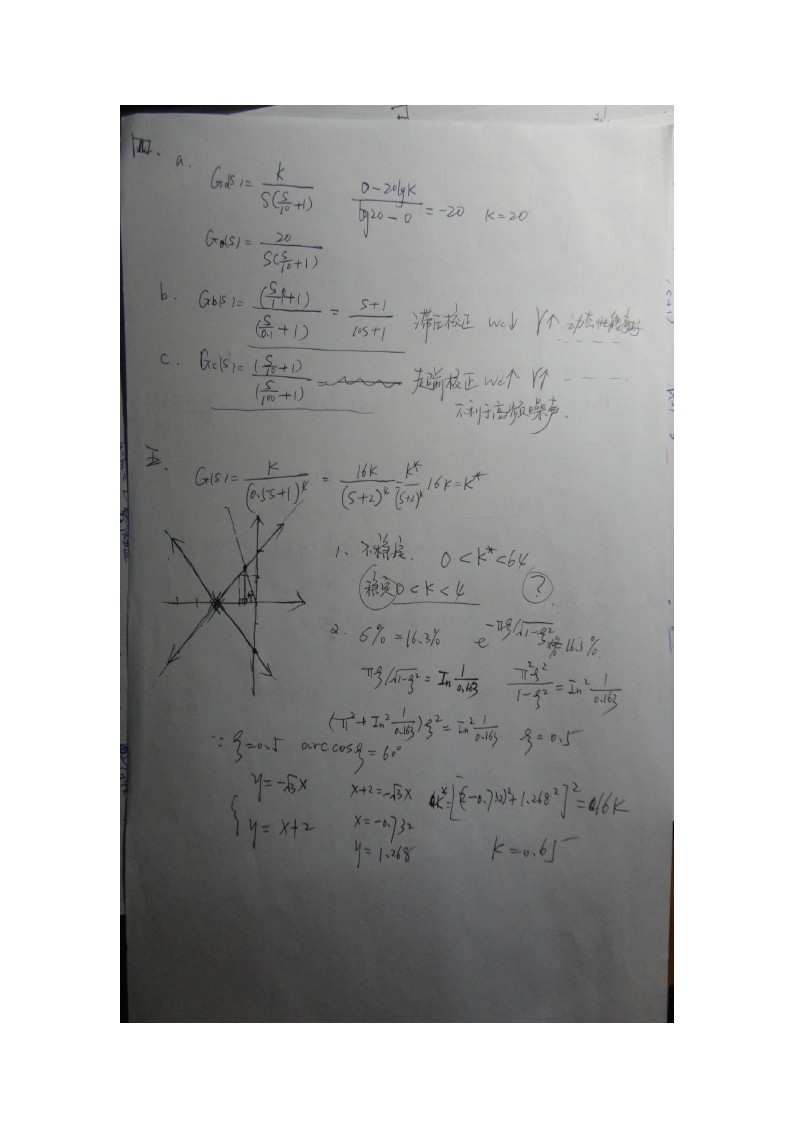 a. G₀(s)=K/(S(S/10+1)) (0-20lgK)/(lg20-0)=-20 K=20
G₀(s)=20/(S(S/10+1))
b. Gb(s)=(S/1+1)/(S/0.1+1)=(S+1)/(10S+1) 滞后校正 Wc↓ γ↑
c. Gc(s)=(S/10+1)/(S/100+1)= 超前校正 Wc↑ γ↑
不利于高频噪声.
五. G(s)=K/(0.5S+1)⁴=16K/(S+2)⁴=K*/(S+2)⁴ 16K=K*
1、不稳定. 0<K*<64
稳定 0<K<4 ?
2. б%=16.3% e^(-πξ/√(1-ξ²)) 16.3%.
πξ/√(1-ξ²)=In 1/0.163 π²ξ²/(1-ξ²)=In² 1/0.163
(π²+In² 1/0.163)ξ²=In² 1/0.163 ξ=0.5
∵ξ=0.5 arccosξ=60°
{ y=-√3x x+2=-√3x K*=[(2-0.732)²+1.268²]²=16K
y=x+2 x=-0.732
y=1.268 K=0.65